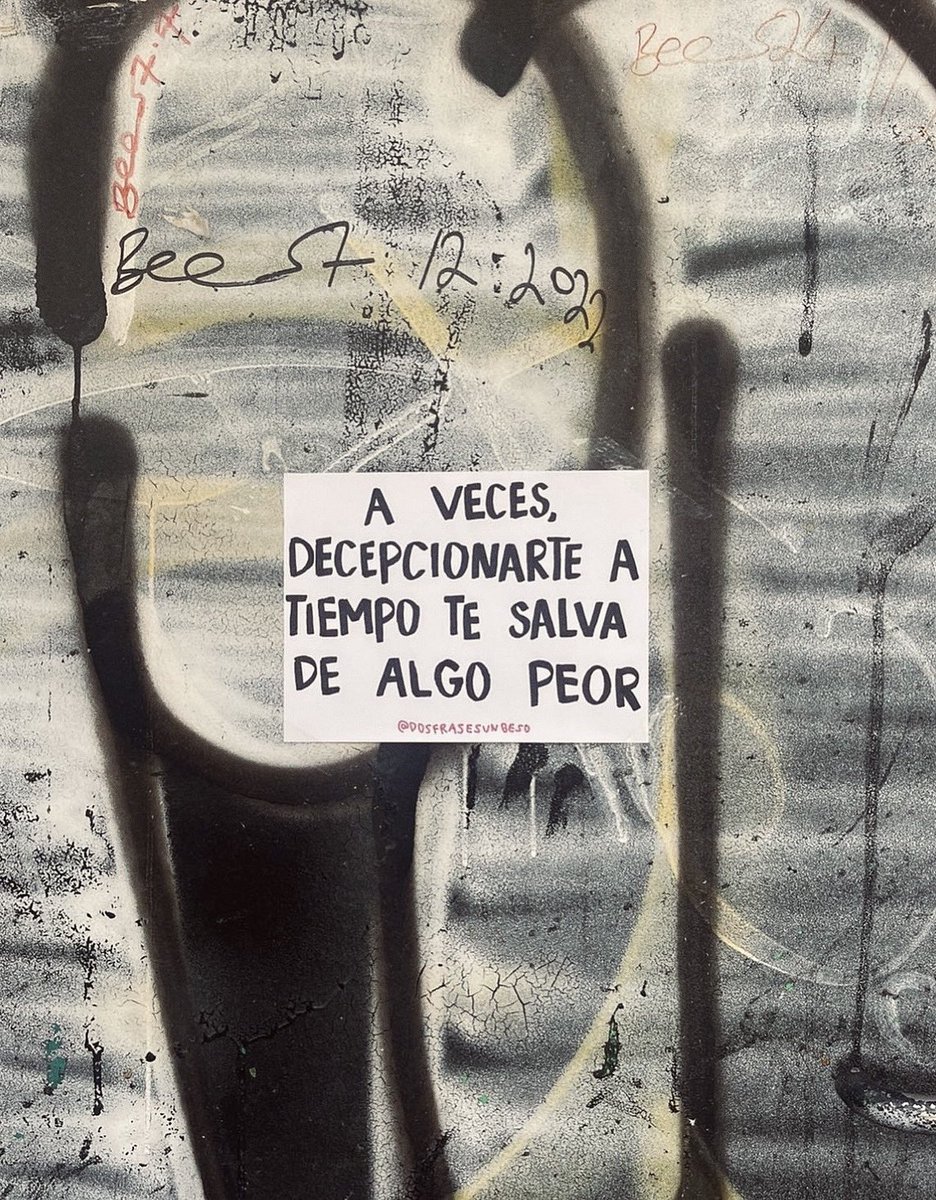 Bee
Bee S7 12:2022
A VECES,
DECEPCIONARTE A
TIEMPO TE SALVA
DE ALGO PEOR
@DOSFRASESUNBESO